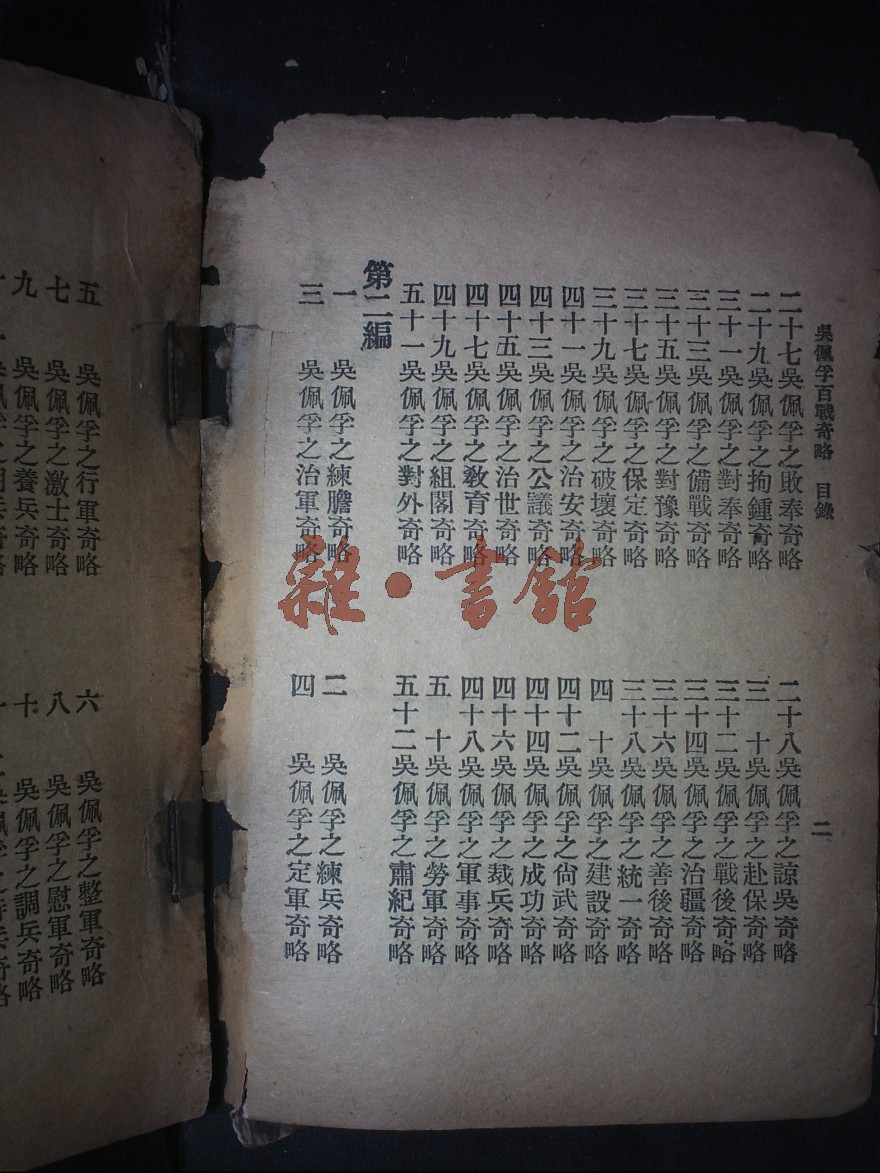 吳佩孚百戰奇略 目錄 二
二十七吳佩孚之敗奉奇略 二十八吳佩孚之諒吳奇略
二十九吳佩孚之拘鍾奇略 三十吳佩孚之赴保奇略
三十一吳佩孚之對奉奇略 三十二吳佩孚之戰後奇略
三十三吳佩孚之備戰奇略 三十四吳佩孚之治疆奇略
三十五吳佩孚之對豫奇略 三十六吳佩孚之善後奇略
三十七吳佩孚之保定奇略 三十八吳佩孚之統一奇略
三十九吳佩孚之破壞奇略 四十吳佩孚之建設奇略
四十一吳佩孚之治安奇略 四十二吳佩孚之尙武奇略
四十三吳佩孚之公議奇略 四十四吳佩孚之成功奇略
四十五吳佩孚之治世奇略 四十六吳佩孚之裁兵奇略
四十七吳佩孚之教育奇略 四十八吳佩孚之軍事奇略
四十九吳佩孚之組閣奇略 五十吳佩孚之勞軍奇略
五十一吳佩孚之對外奇略 五十二吳佩孚之肅紀奇略
第二編
一 吳佩孚之練膽奇略 二 吳佩孚之練兵奇略
三 吳佩孚之治軍奇略 四 吳佩孚之定軍奇略
五 吳佩孚之行軍奇略 六 吳佩孚之整軍奇略
七 吳佩孚之激士奇略 八 吳佩孚之慰軍奇略
九 吳佩孚之養兵奇略 十 吳佩孚之調兵奇略
雜·書館